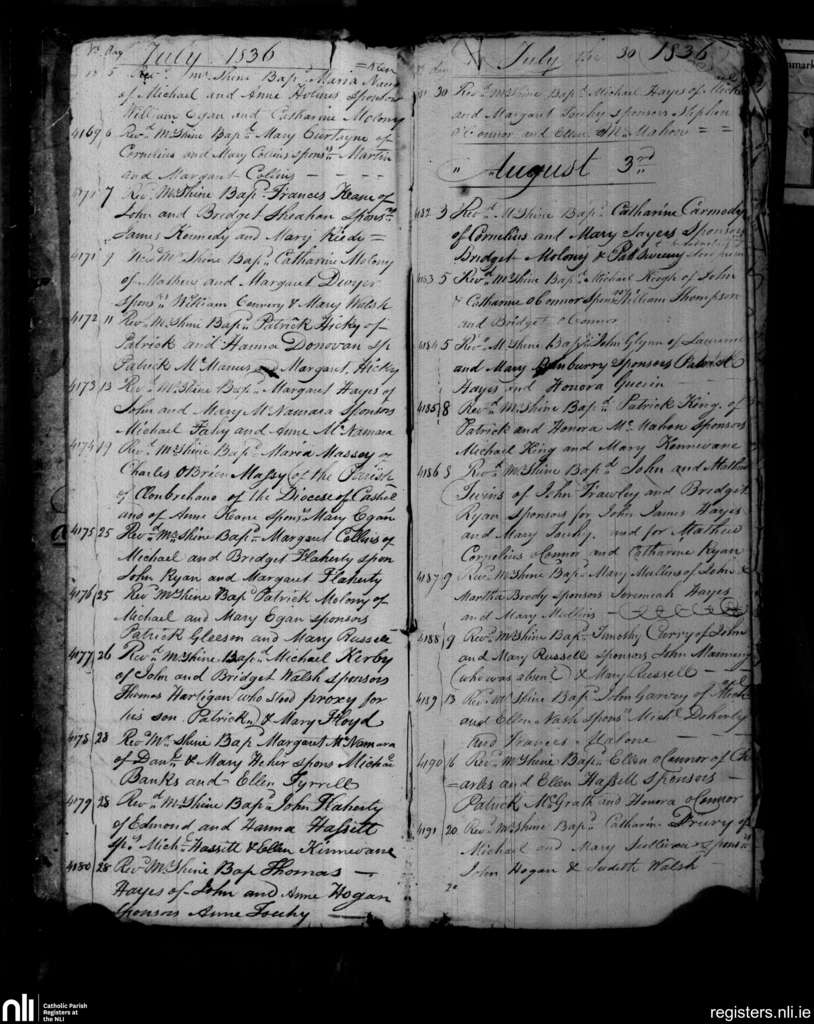 No day July 1836
5 Revd Mc Shine Bapd Maria
of Michael and Anne Holmes sponsors
William Egan and Catharine Molony
4169 6 Revd Mc Shine Bapd Mary Curtayne of
Cornelius and Mary Collins sponsrs Martin
and Margaret Collins
4170 7 Revd Mc Shine Bapd Frances Keane of
John and Bridget Sheahan Sponsrs
James Kennedy and Mary Riedy =
4171 9 Revd Mc Shine Bapd Catharine Molony
of Mathew and Margaret Dwyer
sponsrs William Conroy & Mary Walsh
4172 11 Revd Mc Shine Bapd Patrick Hicky of
Patrick and Hanna Donovan sp
Patrick Mc Manus and Margaret Hicky
4173 13 Revd Mc Shine Bapd Margaret Hayes of
John and Mary Mc Namara sponsors
Michael Fahy and Anne Mc Namara
4174 19 Revd Mc Shine Bapd Maria Massey of
Charles O Brien Massy (of the Parish
of Clonbrehane of the Diocese of Cashel
and of Anne Keane sponsr Mary Egan
4175 25 Revd Mc Shine Bapd Margaret Collins of
Michael and Bridget Flaherty spon
John Ryan and Margaret Flaherty
4176 25 Revd Mc Shine Bapd Patrick Molony of
Michael and Mary Egan sponsors
Patrick Gleeson and Mary Russell
4177 26 Revd Mc Shine Bapd Michael Kerby
of John and Bridget Walsh sponsors
Thomas Hartigan who stood proxy for
his son Patrick & Mary Floyd
4178 28 Revd Mc Shine Bapd Margaret Mc Namara
of Danl & Mary Hehir spons Michae
Banks and Ellen Tyrrell
4179 28 Revd Mc Shine Bapd John Flaherty
of Edmond and Hanna Hassitt
sps Mich Hassitt & Ellen Kinnewane
4180 28 Revd Mc Shine Bap Thomas —
Hayes of John and Anne Hogan
sponsors Anne Touhy —
July the 30 1836
30 Revd Mc Shine Bapd Michael Hayes of
and Margaret Touhy sponsors Stephen
O'Connor and Ellen Mc Mahon = =
" August 3rd
4182 3 Revd Mc Shine Bapd Catharine Carmody
of Cornelius and Mary Sayers Sponsors
Bridget Molony & Pat Sweeny
4183 5 Revd Mc Shine Bapd Michael Keogh of John
& Catharine O Connor sponsrs William Thompson
and Bridget O Connor
4184 5 Revd Mc Shine Bapd John Glynn of
and Mary sponsors Patrick
Hayes and Honora Guerin —
4185 8 Revd Mc Shine Bapd Patrick King of
Patrick and Honora Mc Mahon sponsors
Michael King and Mary Kennewane
4186 8 Revd Mc Shine Bapd John and Mathew
Twins of John Frawley and Bridget
Ryan sponsors for John James Hayes
and Mary Touhy, and for Mathew
Cornelius O Connor and Catharine Ryan
4187 9 Revd Mc Shine Bapd Mary Mullins of John &
Martha Brody sponsors Jeremiah Hayes
and Mary Mullins —
4188 9 Revd Mc Shine Bapd Timothy Curry of John
and Mary Russell sponsors John Mannix
(who was absent) & Mary Russell —
4189 13 Revd Mc Shine Bapd John Garvey of Michl
and Ellen Nash sponsrs Michl Doherty
and Frances Malone —
4190 16 Revd Mc Shine Bapd Ellen O Connor of Ch
=arles and Ellen Hassett sponsors —
Patrick Mc Grath and Honora O Connor
4191 20 Revd Mc Shine Bapd Catharine Drury of
Michael and Mary Sullivan sponsrs
John Hogan & Judith Walsh
20
nli Catholic Parish
Registers at
the NLI
registers.nli.ie